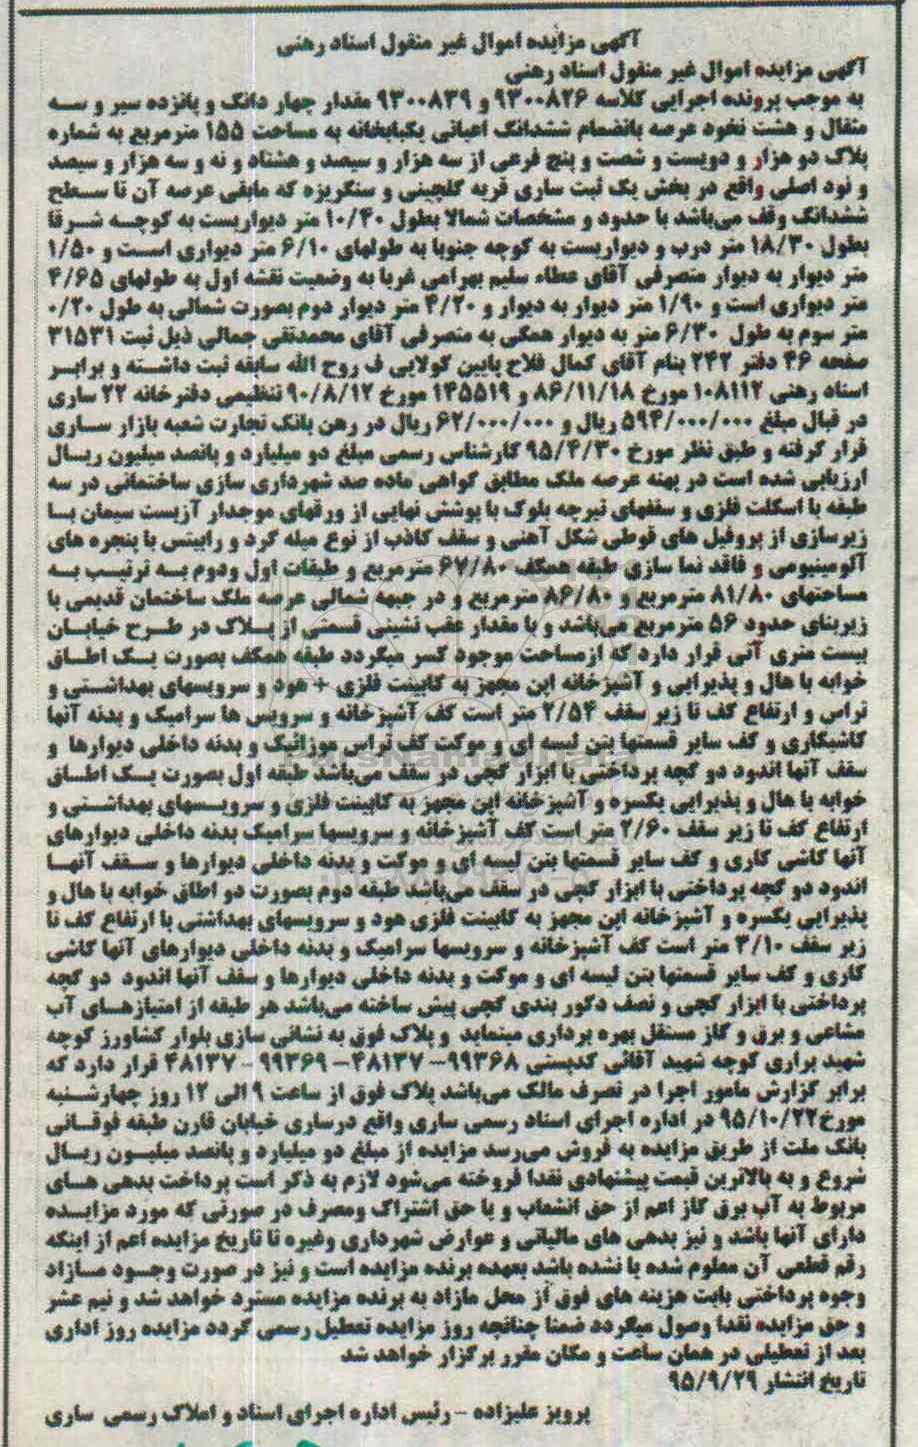 آگهی مزایده اموال غیر منقول اسناد رهنی
آگهی مزایده اموال غیر منقول اسناد رهنی
به موجب پرونده اجرایی کلاسه ۹۳۰۰۸۲۶ و ۹۳۰۰۸۳۹ مقدار چهار دانگ و پانزده سیر و سه
مثقال و هشت نخود عرصه بانضمام ششدانگ اعیانی یکبابخانه به مساحت ۱۵۵ مترمربع به شماره
پلاک دو هزار و دویست و شصت و پنج فرعی از سه هزار و سیصد و هشتاد و نه و سه هزار و سیصد
و نود اصلی واقع در بخش یک ثبت ساری قریه گلچینی و سنگریزه که مابقی عرصه آن تا سطح
ششدانگ وقف می‌باشد با حدود و مشخصات شمالا بطول ۱۰/۴۰ متر دیواریست به کوچه شرقا
بطول ۱۸/۳۰ متر درب و دیواریست به کوچه جنوبا به طولهای ۶/۱۰ متر دیواری است و ۱/۵۰
متر دیوار به دیوار متصرفی آقای عطاء سلیم بهرامی غربا به وضعیت نقشه اول به طولهای ۴/۶۵
متر دیواری است و ۱/۹۰ متر دیوار به دیوار و ۴/۲۰ متر دیوار دوم بصورت شمالی به طول ۰/۲۰
متر سوم به طول ۶/۳۰ متر به دیوار همگی به متصرفی آقای محمدتقی جمالی ذیل ثبت ۳۱۵۳۱
صفحه ۴۶ دفتر ۲۴۲ بنام آقای کمال فلاح پایین کولایی ف روح الله سابقه ثبت داشته و برابر
اسناد رهنی ۱۰۸۱۱۲ مورخ ۸۶/۱۱/۱۸ و ۱۴۵۵۱۹ مورخ ۹۰/۸/۱۲ تنظیمی دفترخانه ۲۲ ساری
در قبال مبلغ ۵۹۴/۰۰۰/۰۰۰ ریال و ۶۲/۰۰۰/۰۰۰ ریال در رهن بانک تجارت شعبه بازار ساری
قرار گرفته و طبق نظر مورخ ۹۵/۴/۳۰ کارشناس رسمی مبلغ دو میلیارد و پانصد میلیون ریال
ارزیابی شده است در پهنه عرصه ملک مطابق گواهی ماده صد شهرداری سازی ساختمانی در سه
طبقه با اسکلت فلزی و سقفهای تیرچه بلوک با پوشش نهایی از ورقهای موجدار آزبست سیمان با
زیرسازی از پروفیل های قوطی شکل آهنی و سقف کاذب از نوع میله گرد و رابیتس با پنجره های
آلومینیومی و فاقد نما سازی طبقه همکف ۶۷/۸۰ مترمربع و طبقات اول ودوم به ترتیب به
مساحتهای ۸۱/۸۰ مترمربع و ۸۶/۸۰ مترمربع و در جبهه شمالی عرصه ملک ساختمان قدیمی با
زیربنای حدود ۵۶ مترمربع می‌باشد و با مقدار عقب نشینی قسمتی از پلاک در طرح خیابان
بیست متری آتی قرار دارد که ازمساحت موجود کسر میگردد طبقه همکف بصورت یک اطاق
خوابه با هال و پذیرایی و آشپزخانه اپن مجهز به کابینت فلزی + هود و سرویسهای بهداشتی و
تراس و ارتفاع کف تا زیر سقف ۲/۵۴ متر است کف آشپزخانه و سرویس ها سرامیک و بدنه آنها
کاشیکاری و کف سایر قسمتها بتن لیسه ای و موکت کف تراس موزائیک و بدنه داخلی دیوارها و
سقف آنها اندود دو گچه پرداختی با ابزار گچی در سقف می‌باشد طبقه اول بصورت یک اطاق
خوابه با هال و پذیرایی یکسره و آشپزخانه اپن مجهز به کابینت فلزی و سرویسهای بهداشتی و
ارتفاع کف تا زیر سقف ۲/۶۰ متر است کف آشپزخانه و سرویسها سرامیک بدنه داخلی دیوارهای
آنها کاشی کاری و کف سایر قسمتها بتن لیسه ای و موکت و بدنه داخلی دیوارها و سقف آنها
اندود دو گچه پرداختی با ابزار گچی در سقف می‌باشد طبقه دوم بصورت دو اطاق خوابه با هال و
پذیرایی یکسره و آشپزخانه اپن مجهز به کابینت فلزی هود و سرویسهای بهداشتی با ارتفاع کف تا
زیر سقف ۳/۱۰ متر است کف آشپزخانه و سرویسها سرامیک و بدنه داخلی دیوارهای آنها کاشی
کاری و کف سایر قسمتها بتن لیسه ای و موکت و بدنه داخلی دیوارها و سقف آنها اندود دو گچه
پرداختی با ابزار گچی و نصف دکور بندی گچی پیش ساخته می‌باشد هر طبقه از امتیازهای آب
مشاعی و برق و گاز مستقل بهره برداری مینماید و پلاک فوق به نشانی سازی بلوار کشاورز کوچه
شهید براری کوچه شهید آقائی کدپستی ۹۹۳۶۸-۴۸۱۳۷ – ۹۹۳۶۹ - ۴۸۱۳۷ قرار دارد که
برابر گزارش مامور اجرا در تصرف مالک می‌باشد پلاک فوق از ساعت ۹ الی ۱۲ روز چهارشنبه
مورخ۹۵/۱۰/۲۲ در اداره اجرای اسناد رسمی ساری واقع درساری خیابان قارن طبقه فوقانی
بانک ملت از طریق مزایده به فروش می‌رسد مزایده از مبلغ دو میلیارد و پانصد میلیون ریال
شروع و به بالاترین قیمت پیشنهادی نقدا فروخته می‌شود لازم به ذکر است پرداخت بدهی های
مربوط به آب برق گاز اعم از حق انشعاب و یا حق اشتراک ومصرف در صورتی که مورد مزایده
دارای آنها باشد و نیز بدهی های مالیاتی و عوارض شهرداری وغیره تا تاریخ مزایده اعم از اینکه
رقم قطعی آن معلوم شده یا نشده باشد بعهده برنده مزایده است و نیز در صورت وجود مازاد
وجوه پرداختی بابت هزینه های فوق از محل مازاد به برنده مزایده مسترد خواهد شد و نیم عشر
و حق مزایده نقدا وصول میگردد ضمنا چنانچه روز مزایده تعطیل رسمی گردد مزایده روز اداری
بعد از تعطیلی در همان ساعت و مکان مقرر برگزار خواهد شد
تاریخ انتشار ۹۵/۹/۲۹
پرویز علیزاده – رئیس اداره اجرای اسناد و املاک رسمی ساری